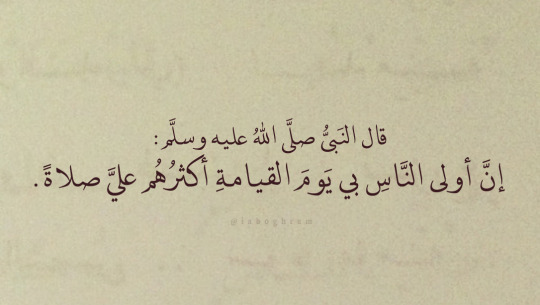 قال النَبيُّ صلَّى اللهُ عليه وسلَّم:
إنَّ أولى النَّاسِ بي يَومَ القيامةِ أكثرُهُم عليَّ صلاةً.